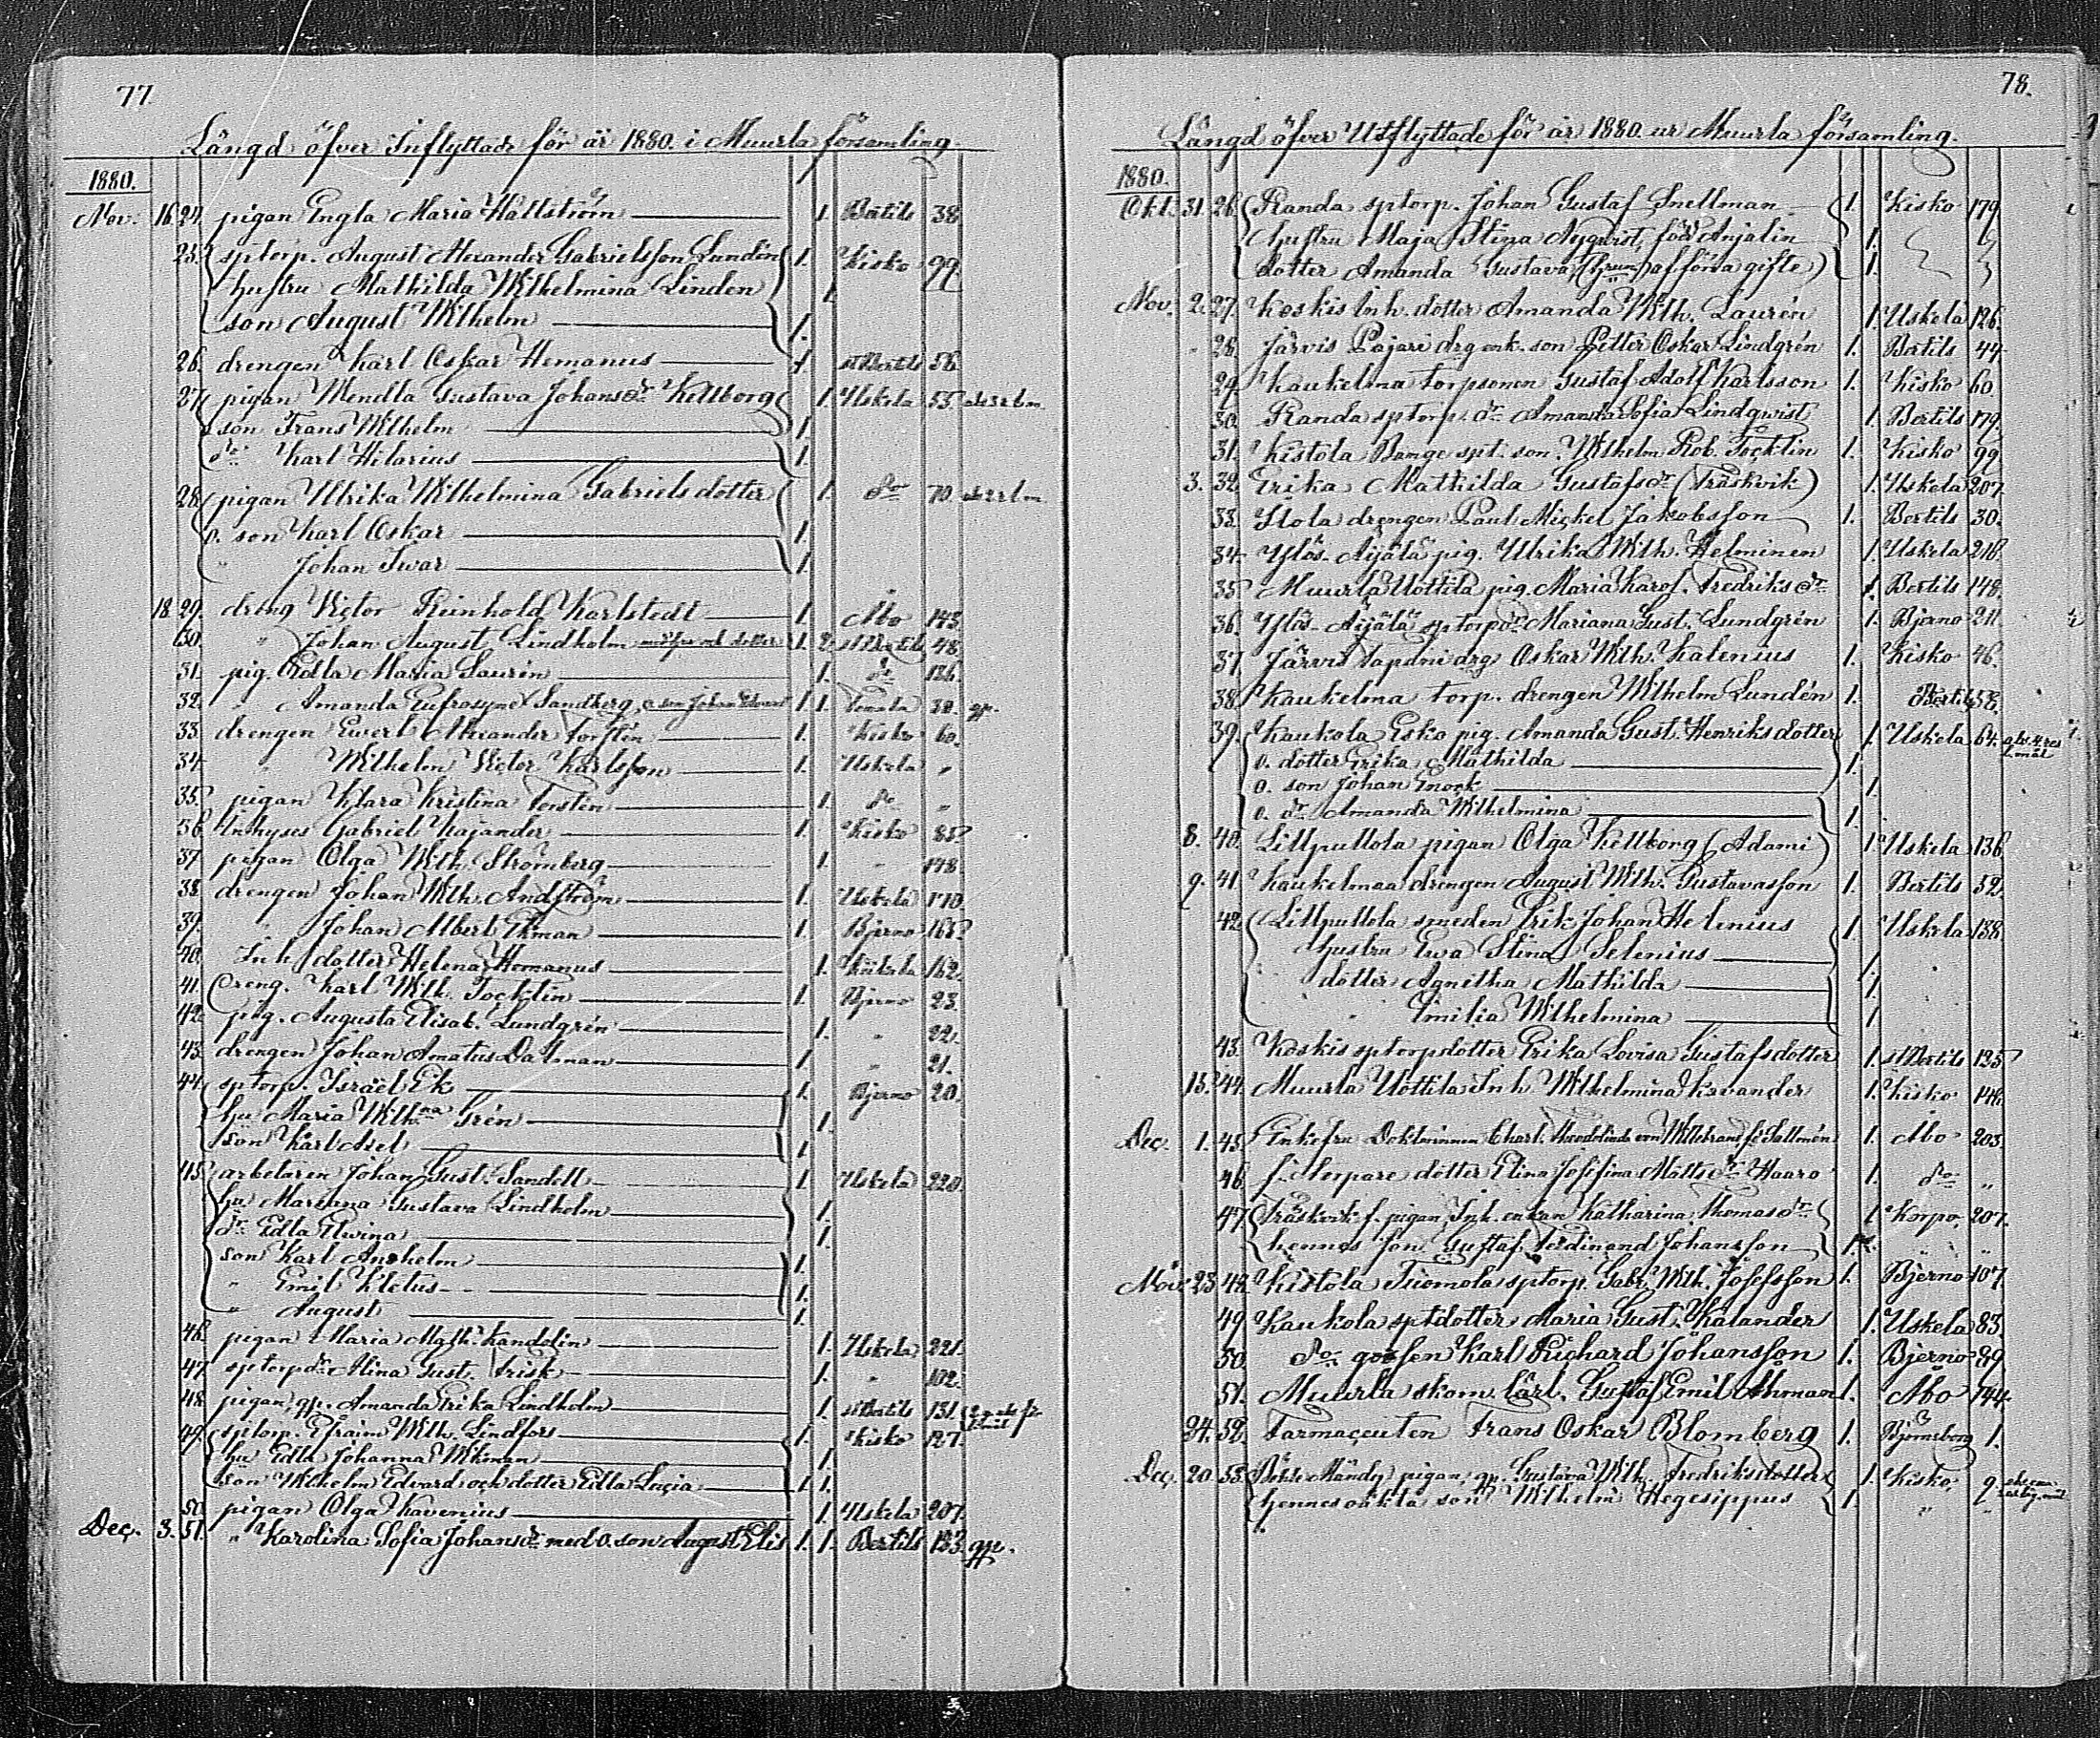 77.
Längd öfver Inflyttade för år 1880 i Muurla församling.
1880.
Nov. 16. 24. pigan Engla Maria Hällström 1. Bertils 38
25. sptorp. August Alexander Gabrielsson Lundén 1. Kisko 99.
hustru Mathilda Wilhelmina Linden 1.
son August Wilhelm 1.
26. drengen Karl Oskar Hemanus 1. St Bertils 56.
27. pigan Mendla Gustava Johansdr Kellborg 1. Uskela 55.
son Frans Wilhelm 1.
dto Karl Hilarius 1.
28. pigan Ulrika Wilhelmina Gabriels dotter 1. do 70.
o. son Karl Oskar 1.
" Johan Iwar 1.
18. 29. dreng Victor Reinhold Karlstedt 1. Åbo 143.
30. " Johan August Lindholm med hu och dotter 1. 2. St Bertils 48.
31. pig. Edla Maria Laurén 1. do 126.
32. " Amanda Eufrosyne Sandberg, o. son Johan 1. 1. 38. gp.
33. drengen Ewert Alexander Torstén 1. Kisko 60.
34. " Wilhelm Victor Karlsson 1. Uskela "
35. pigan Klara Kristina Torstén 1. do "
36. Inhyses Gabriel Kajander 1. Kisko 85.
37. pigan Olga Wilh. Strömberg 1. " 148.
38. drengen Johan Wilh. Andström 1. Uskela 170.
39. " Johan Albert Ekman 1. Bjerno 163.
40. Inh. dotter Helena Hemanus 1. 162.
41. dreng. Karl Wilh. Tocklin 1. Bjerno 23.
42. pig. Augusta Elisab. Lundgrén 1. " 22.
43. drengen Johan Amatus Dalman 1. " 21.
44. sptorp. Israël Ek 1. Bjerno 20.
hu Maria Wilhna Trén 1.
son Karl Axel 1.
45. arbetaren Johan Gust. Sandell 1. Uskela 220.
hu. Mariana Gustava Lindholm 1.
dr Edla Elwina 1.
son Karl Anshelm 1.
" Emil Kletus 1.
" August 1.
46. pigan Maria Math. Kandelin 1. Uskela 221.
47. sptorpdr Alina Gust. Frisk 1. " 102.
48. pigan, gp. Amanda Erika Lindholm 1. St Bertils 131.
49. sptorp. Efraim Wilh. Lindfors 1. Kisko 127.
hu Edla Johanna Wikman 1.
son Wilhelm Edvard och dotter Edla Lucia 1. 1.
50. pigan Olga Kavenius 1. Uskela 207.
Dec. 3. 51. " Karolina Sofia Johansdr med o. son August Elis 1. 1. Bertils 133. gp.
78.
Längd öfver Utflyttade för år 1880 ur Muurla församling.
1880.
Okt. 31. 26. Randa sptorp. Johan Gustaf Snellman 1. Kisko 179.
hustru Maja Stina Nyqvist, född Anjalin 1.
dotter Amanda Gustava af förra gifte) 1.
Nov. 2. 27. Koskis Inh. dotter Amanda Wilh. Laurén 1. Uskela 126.
28. Järvis Pajari drg enk. son Petter Oskar Lindgrén 1. Bertils 44.
29. Kaukelma torpsonen Gustaf Adolf Karlsson 1. Kisko 60.
30. Randa sptorp. dr Amanda Sofia Lindqvist 1. Bertils 179.
31. Kistola Bange spt. son. Wilhelm Rob. Tocklin 1. Kisko 99.
3. 32. Erika Mathilda Gustafsdr (Träskvik) 1. Uskela 207.
33. Ilola drengen Paul Mickel Jakobsson 1. Bertils 30.
34. Ylös-Äijälä pig. Ulrika Wilh. Helminen 1. Uskela 216.
35. Muurla Uottila pig. Maria Karol. Fredriksdr 1. Bertils 148.
36. Ylös-Äijälä sptorpdr Mariana Gust. Lundgrén 1. Bjerno 211.
37. Järvis Tapani drg Oskar Wilh. Kalenius 1. Kisko 46.
38. Kaukelma torp. drengen Wilhelm Lundén 1. Bertils 58.
39. Kaukola Esko pig. Amanda Gust. Henriksdotter 1. Uskela 64.
o. dotter Erika Mathilda 1.
o. son Johan Enock 1.
o. dr Amanda Wilhelmina 1.
8. 40. Lillpullola pigan Olga Kellborg (Adami) 1. Uskela 136.
9. 41. Kaukelmaa drengen August Wilh. Gustavsson 1. Bertils 52.
42. Lillpullola smeden Erik Johan Helenius 1. Uskela 138.
hustru Ewa Stina Selenius 1.
dotter Agnetha Mathilda 1.
" Emilia Wilhelmina 1.
43. Koskis sptorpsdotter Erika Lovisa Gustafsdotter 1. St Bertils 125.
15. 44. Muurla Uottila Inh. Wilhelmina Kavander 1. Kisko 146.
Dec. 1. 45. Enkefru Doktorinnan Charl. von Willebrand f. Sallmén 1. Åbo 203.
46. f. torpare dotter Elina Josefina Mattsdr Haaro 1. do "
47. Träskvik f. pigan Inh. enkan Katharina Thomasdr 1. Korpo, 207.
hennes son Gustaf Ferdinand Johansson 1. " "
Nov. 23. 48. Kistola Tiomola sptorp. Gabr. Wilh. Josefsson 1. Bjerno 107.
49. Kaukola sptdotter Maria Gust. Kalander 1. Uskela 83.
50. do gossen Karl Richard Johansson 1. Bjerno 89.
51. Muurla skom. lärl. Gustaf Emil Åhman 1. Åbo 144.
24. 52. Farmaceuten Frans Oskar Blomberg 1. Björneborg 1.
Dec. 20. 53. pigan, gp. Gustava Wilh. Fredriksdotter 1. Kisko, 9.
hennes oäkta son Wilhelm Hegesippus 1. " "